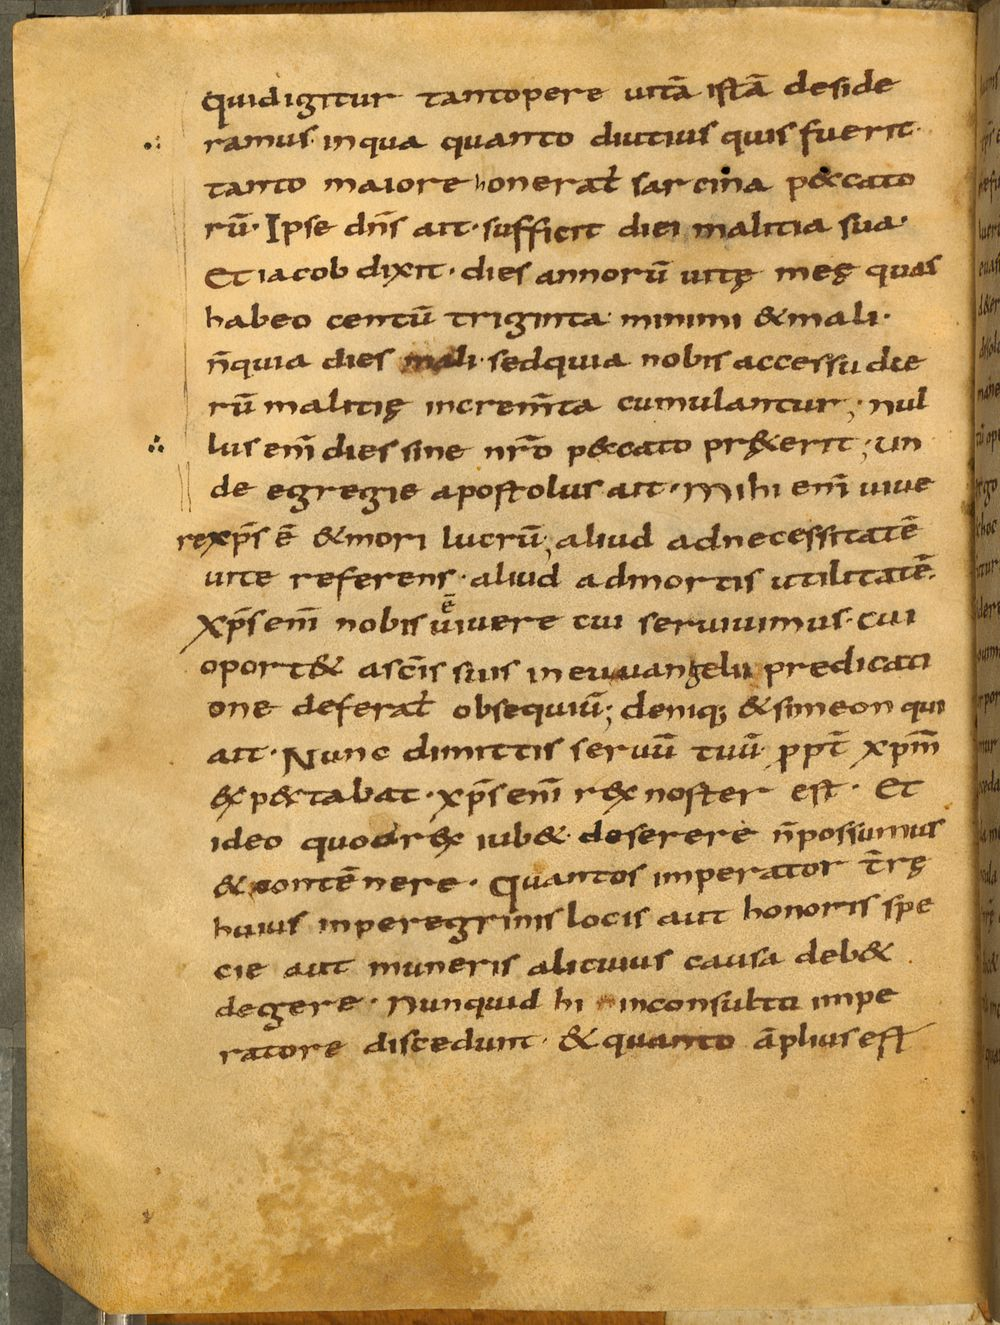 Quidigitur tantopere uitā istā deside
ramus· inqua quanto diutius quis fuerit·
tanto maiore honerat̄ sarcina p&cato
rū· Ipse dn̄s ait· sufficit diei malitia sua·
Et iacob dixit· dies annorū uitę meę quas
habeo centū triginta· minimi &mali·
n̄quia dies mali· sedquia nobis accessu die
rū malitię increm̄ta cumulantur; nul
lus em̄ dies sine nr̄o p&cato pr&erit; un
de egregie apostolus ait· Mihi em̄ uiue
rexp̄s ē &mori lucrū; aliud adnecessitatē
uite referens· aliud admortis utilitatē·
Xp̄s em̄ nobis ē uiuere cui seruiuimus· cui
oport& asc̄is suis in euuangelii predicati
one deferat̄ obsequiū; deniq; &simeon qui
ait· Nunc dimittis seruū tuū ppt̄ xpm̄
exp&tabat· xp̄s em̄ rex noster est· Et
ideo quod rex iub& deserere n̄possumus
&contēnere· Quantos imperator t̄rę
huius inperegrinis locis aut honoris spe
cie aut muneris alicuius causa deb&
degere· Nunquid hi inconsulto impe
ratore discedunt· &quanto āplius est